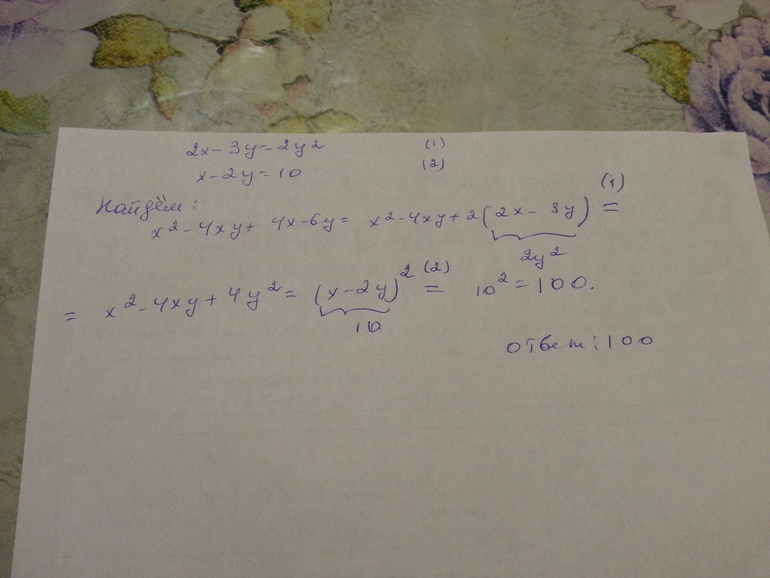 2x-3y=2y2 (1)
x-2y=10 (2)
Найдём:
x²-4xy+4x-6y= x²-4xy+2(2x-3y) (1) =
2y²
= x²-4xy+4y²= (x-2y)² (2) = 10²=100.
10
ответ:100